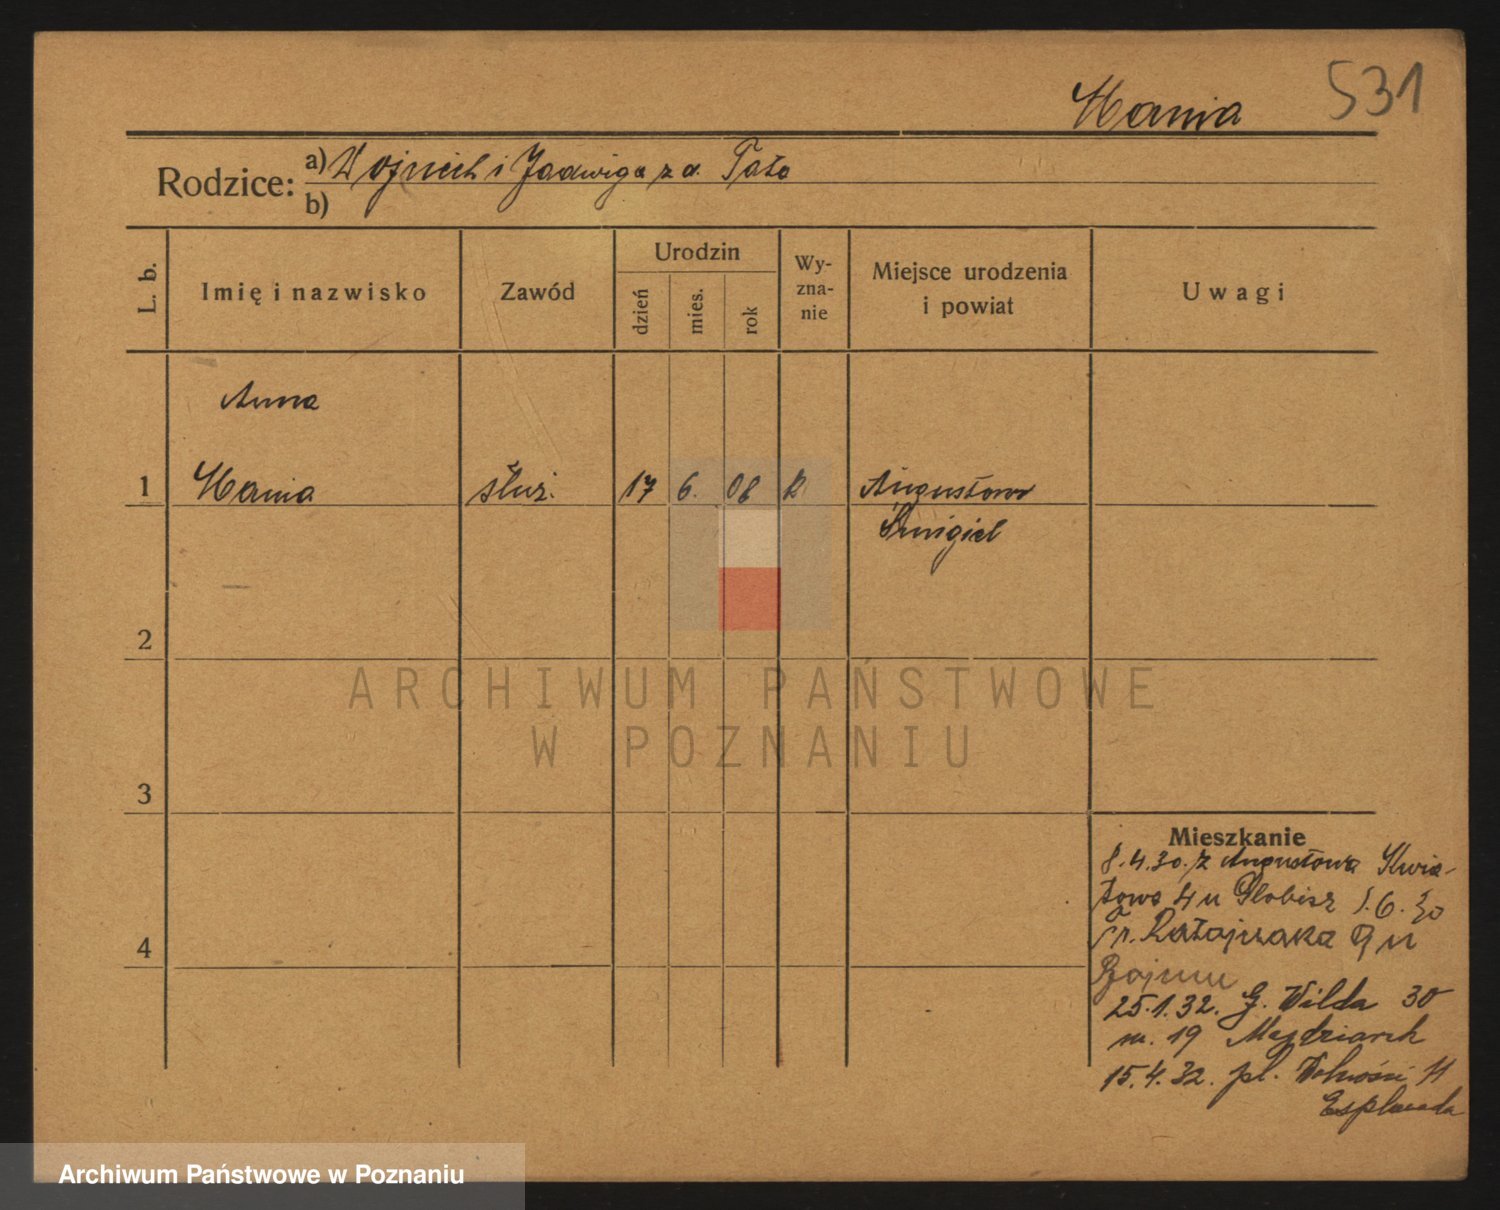 531
Hania
Rodzice: a) Wojciech i Jadwiga z d. Tata
b)
L. b.
Imię i nazwisko
Zawód
Urodzin
dzień
mies.
rok
Wy-
zna-
nie
Miejsce urodzenia
i powiat
Uwagi
Anna
1 Hania służ. 17 6. 08 k Augustowo
Śmigiel
2
ARCHIWUM PAŃSTWOWE
W POZNANIU
3
Mieszkanie
8.4.30. z Augustowa Kwia-
towa 4 u Globisz 1.6.30
Fr. Ratajczaka 9 u
4
25.1.32. G. Wilda 30
m. 19
15.4.32. pl. Wolności 11
Esplanada
Archiwum Państwowe w Poznaniu